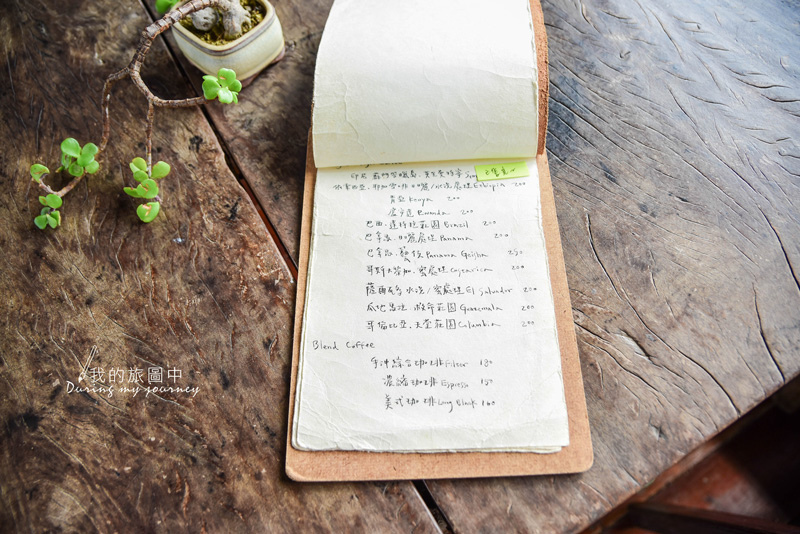 印尼
水洗處理 Ethiopia 200
肯亞 Kenya 200
盧安達 Rwanda 200
巴西.達特拉莊園 Brazil 200
巴拿馬.蜜處理 Panama 200
巴拿馬.藝伎 Panama Geisha 250
哥斯大黎加.蜜處理 Costarica 200
薩爾瓦多 水洗/蜜處理 El Salvador 200
瓜地馬拉. 莊園 Guatemala 200
哥倫比亞.天堂莊園 Columbia 200
Blend Coffee
手沖綜合咖啡 Filter 180
濃縮咖啡 Espresso 150
美式咖啡 Long Black 160
我的旅圖中
During my journey